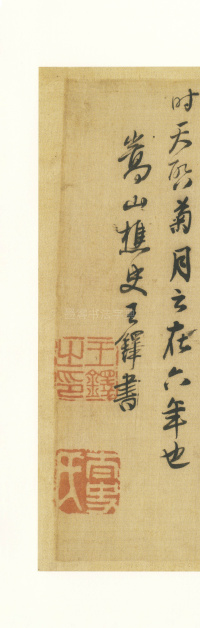 时天啓菊月之在六年也
嵩山樵史王鐸書
王鐸之印